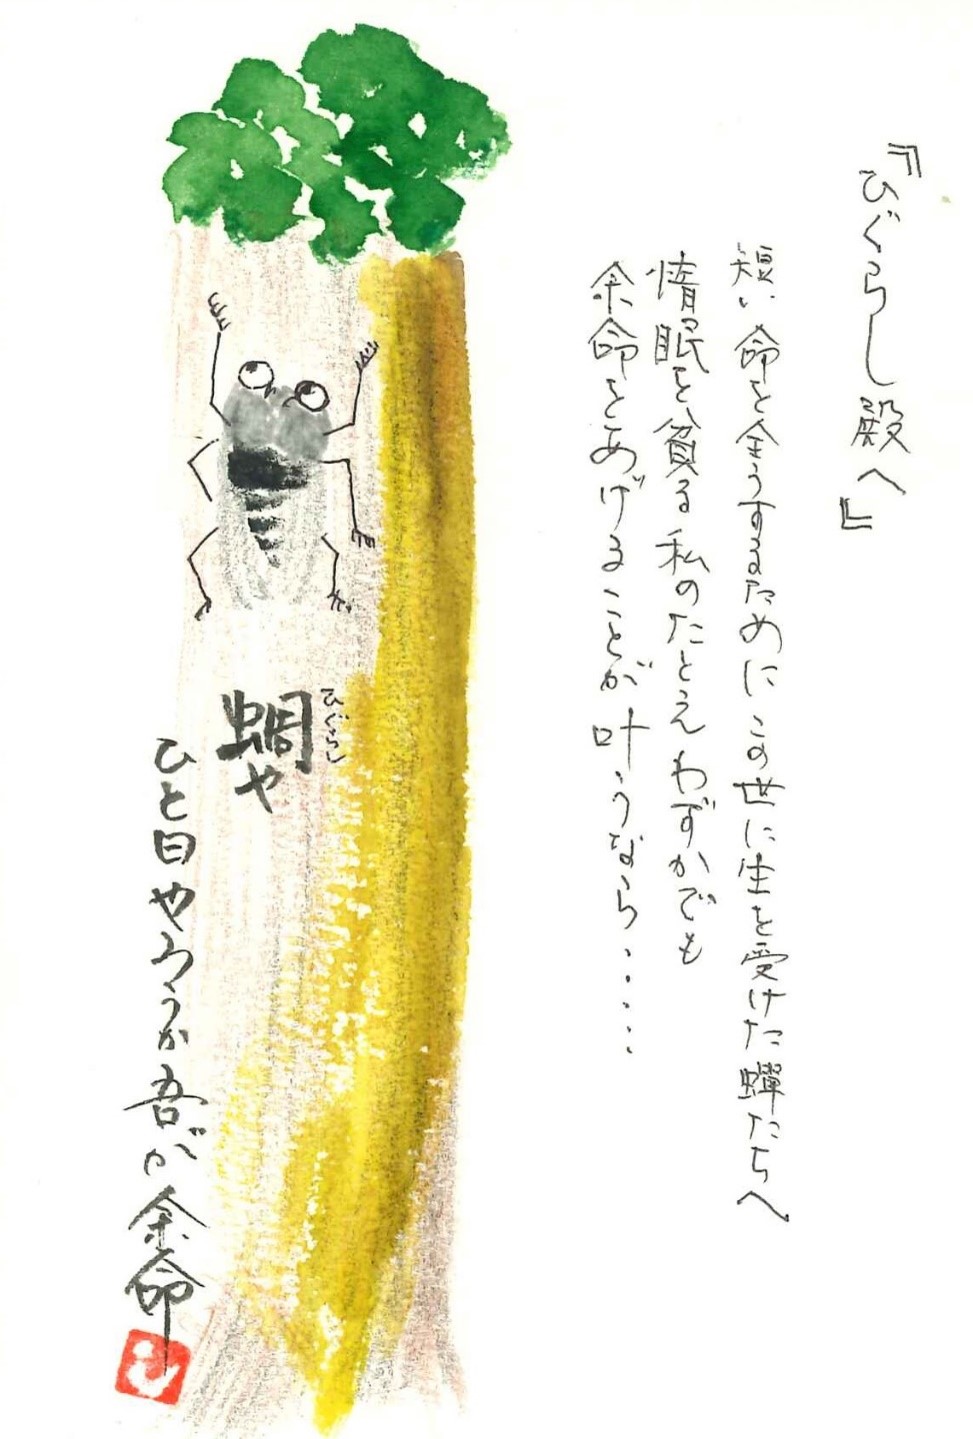 『ひぐらし殿へ』
短い命を全うするために この世に生を受けた蟬たちへ
惰眠を貪る私のたとえ わずかでも
余命をあげることが 叶うなら・・・・・
ひぐらし
蜩や
ひと日やろうか吾が余命